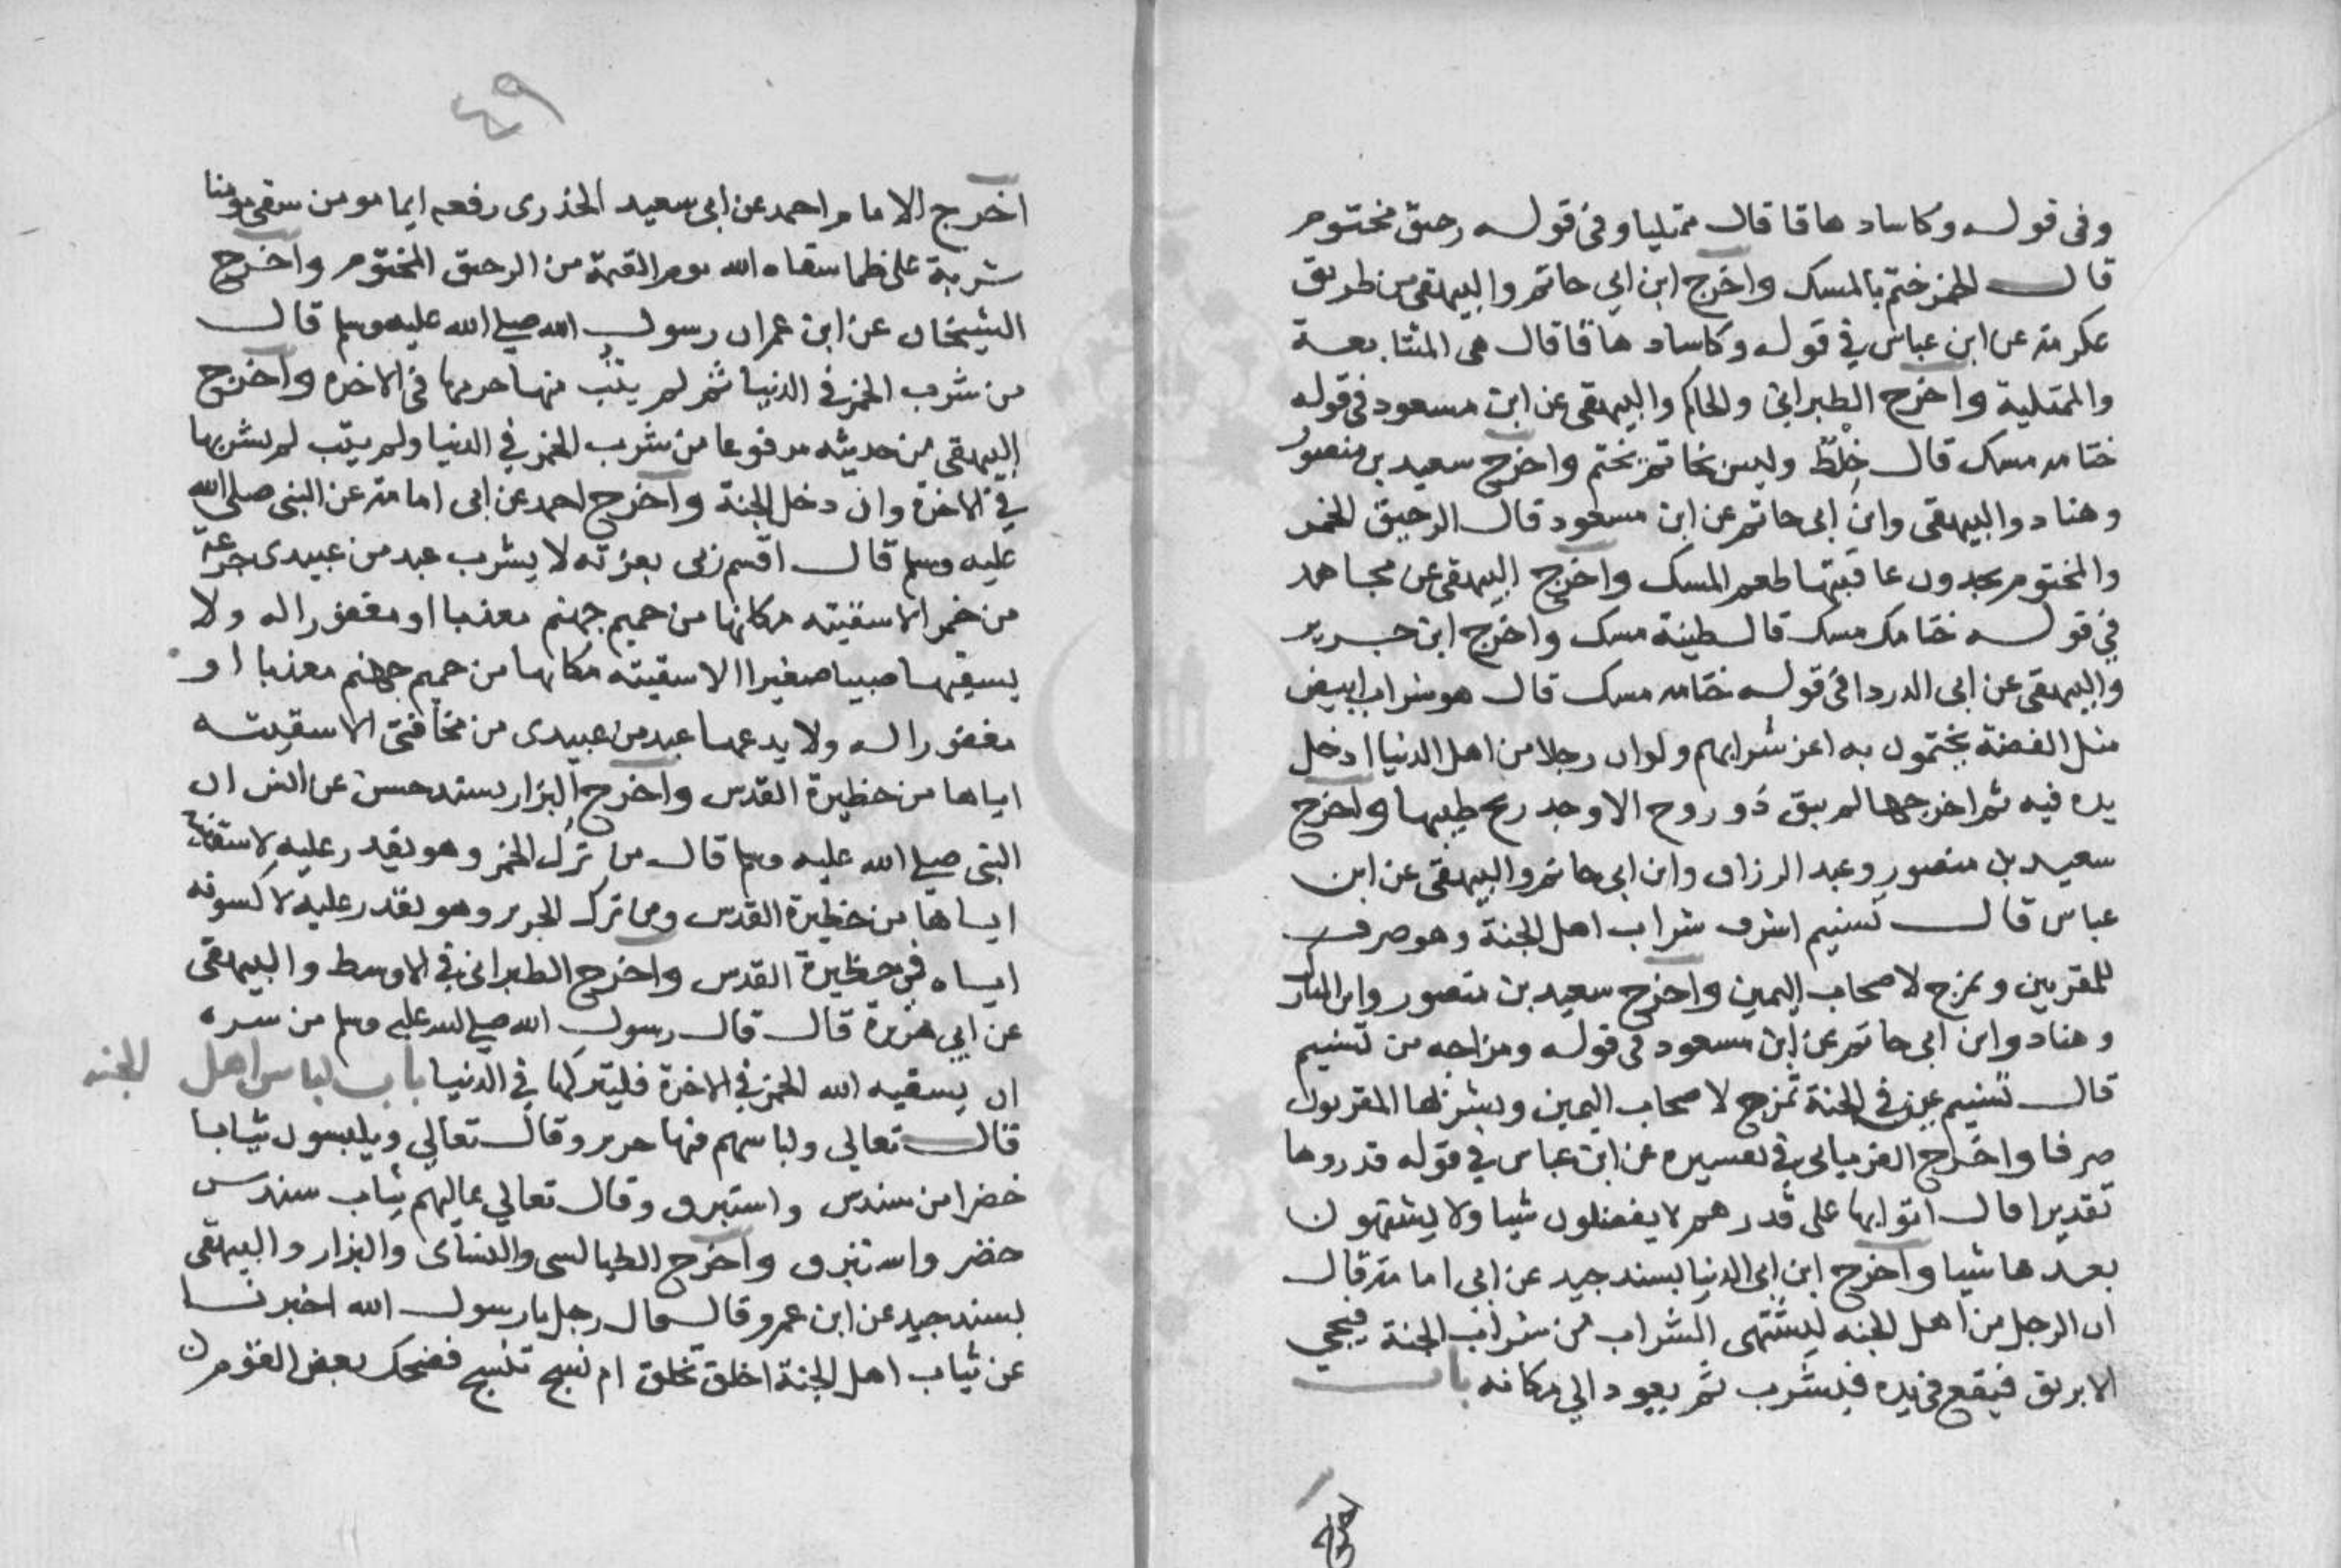 وفى قوله وكاسا دهاقا قال ممتليا وفى قوله رحيق مختوم
قال الخمر ختم بالمسك واخرج ابن ابي حاتم والبيهقى من طريق
عكرمة عن ابن عباس في قوله وكاسا دهاقا قال هى المتتابعة
والممتلية واخرج الطبرانى والحاكم والبيهقى عن ابن مسعود فى قوله
ختامه مسك قال خِلْط وليس بخاتم يختم واخرج سعيد بن منصور
وهناد والبيهقى وابن ابى حاتم عن ابن مسعود قال الرحيق الخمر
والمختوم يجدون عاقبتها طعم المسك واخرج البيهقى عن مجاهد
في قوله ختامه مسك قال طينة مسك واخرج ابن جرير
والبيهقى عن ابى الدردا فى قوله ختامه مسك قال هو شراب ابيض
مثل الفضة يختمون به اخر شرابهم ولو ان رجلا من اهل الدنيا ادخل
يده فيه ثم اخرجها لم يبق ذو روح الا وجد ريح طيبها واخرج
سعيد بن منصور وعبد الرزاق وابن ابي حاتم والبيهقى عن ابن
عباس قال تسنيم اشرف شراب اهل الجنة وهو صرف
للمقربين ويمزج لاصحاب اليمين واخرج سعيد بن منصور وابن المبارك
وهناد وابن ابى حاتم عن ابن مسعود فى قوله ومزاجه من تسنيم
قال تسنيم عين في الجنة تمزج لاصحاب اليمين ويشربها المقربون
صرفا واخرج الفريابى في تفسيره عن ابن عباس في قوله قدروها
تقديرا قال اتوا بها على قدرهم لا يفضلون شيا ولا يشتهون
بعدها شيا واخرج ابن ابى الدنيا بسند جيد عن ابى امامة قال
ان الرجل من اهل الجنه ليشتهى الشراب من شراب الجنة فيجي
الابريق فيقع في يده فيشرب ثم يعود الي مكانه باب
اخرج
٤٩
اخرج الامام احمد عن ابى سعيد الخذرى رفعه ايما مومن سقى مومنا
شربة على ظما سقاه الله يوم القيمة من الرحيق المختوم واخرج
الشيخان عن ابن عمر ان رسول الله صلي الله عليه وسلم قال
من شرب الخمر في الدنيا ثم لم يتب منها حرمها فى الاخره واخرج
البيهقى من حديثه مرفوعا من شرب الخمر في الدنيا ولم يتب لم يشربها
في الاخرة وان دخل الجنة واخرج احمد عن ابى امامة عن النبى صلي الله
عليه وسلم قال اقسم ربى بعزته لا يشرب عبد من عبيدى جرعة
من خمر الا سقيته مكانها من حميم جهنم معذبا او مغفورا له ولا
يسقيها صبيا صغيرا الا سقيته مكانها من حميم جهنم معذبا او
مغفورا له ولا يدعها عبد من عبيدى من مخافتى الا سقيته
اياها من حظيرة القدس واخرج البزار بسند حسن عن انس ان
النبى صلي الله عليه وسلم قال من ترك الخمر وهو يقدر عليه لاسقينه
اياها من حظيرة القدس ومن ترك الحرير وهو يقدر عليه لاكسونه
اياه فى حظيرة القدس واخرج الطبرانى في الاوسط والبيهقى
عن ابي هريرة قال قال رسول الله صلي الله عليه وسلم من سره
ان يسقيه الله الخمر في الاخرة فليتركها في الدنيا باب لباس اهل الجنه
قال تعالى ولباسهم فيها حرير وقال تعالي ويلبسون ثيابا
خضرا من سندس واستبرق وقال تعالي عاليهم ثياب سندس
خضر واستبرق واخرج الطيالسى والنساى والبزار والبيهقى
بسند جيد عن ابن عمرو قال قال رجل يا رسول الله اخبرنا
عن ثياب اهل الجنة اخلق تخلق ام نسج تنسج فضحك بعض القوم